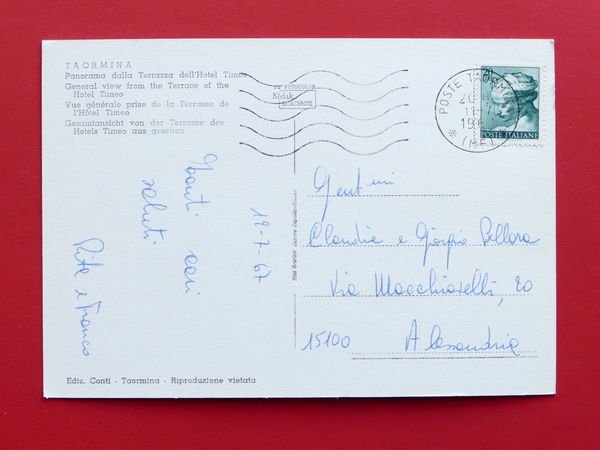 TAORMINA
Panorama dalla Terrazza dell'Hotel Timeo
General view from the Terrace of the
Hotel Timeo
Vue générale prise de la Terrasse de
l'Hôtel Timeo
Gesamtansicht von der Terrasse des
Hotels Timeo aus gesehen
FOTOCOLOR
Kodak
EKTACHROME
POSTE TAORMINA
(ME)
POSTE ITALIANE
12-7-67
Tanti cari
saluti
Rita e Franco
Gent.mi
Claudia e Giorgio Bellora
Via Macchiavelli, 20
15100 Alessandria
Ediz. Conti - Taormina - Riproduzione vietata